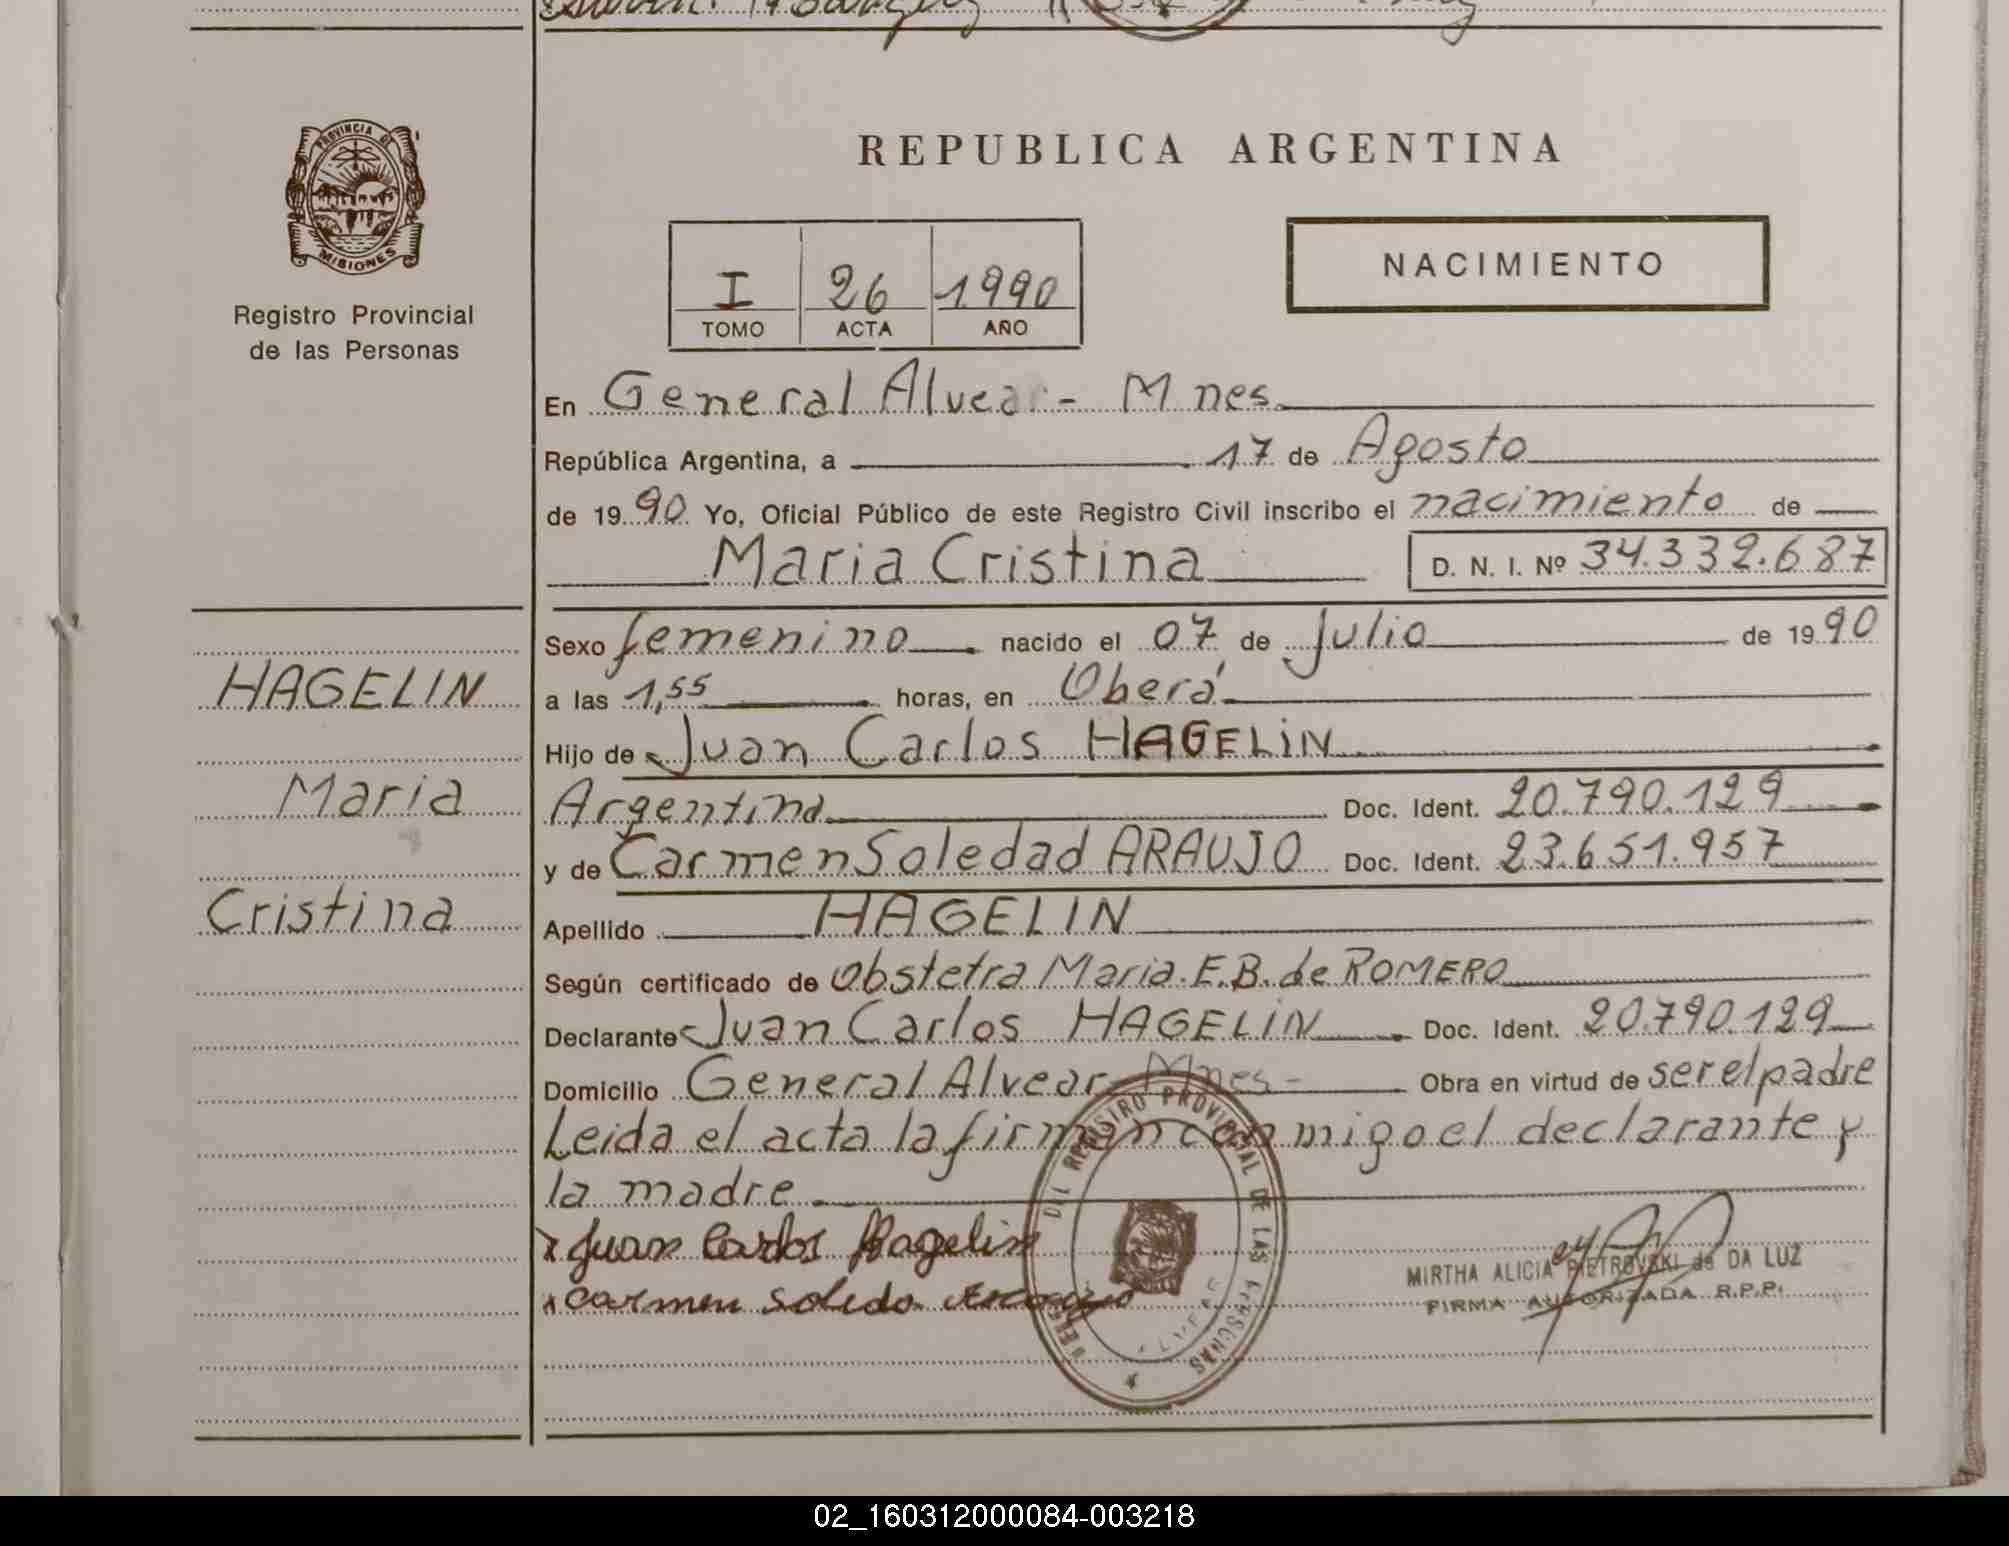 PROVINCIA DE
MISIONES
Registro Provincial
de las Personas
HAGELIN
Maria
Cristina
REPUBLICA ARGENTINA
I 26 1990
TOMO ACTA AÑO
NACIMIENTO
En General Alvear - Mnes.
República Argentina, a 17 de Agosto
de 1990 Yo, Oficial Público de este Registro Civil inscribo el nacimiento de
Maria Cristina D. N. I. Nº 34.332.687
Sexo femenino nacido el 07 de Julio de 1990
a las 1,55 horas, en Oberá
Hijo de Juan Carlos HAGELIN
Argentina Doc. Ident. 20.790.129
y de Carmen Soledad ARAUJO Doc. Ident. 23.651.957
Apellido HAGELIN
Según certificado de Obstetra Maria.E.B. de ROMERO
Declarante Juan Carlos HAGELIN Doc. Ident. 20.790.129
Domicilio General Alvear - Mnes - Obra en virtud de ser el padre
Leida el acta la firman conmigo el declarante y
la madre
x Juan Carlos Hagelin
x carmen soledo
DEL REGISTRO PROVINCIAL DE LAS PERSONAS
MIRTHA ALICIA PIETROVSKI de DA LUZ
FIRMA AUTORIZADA R.P.P.
02_160312000084-003218